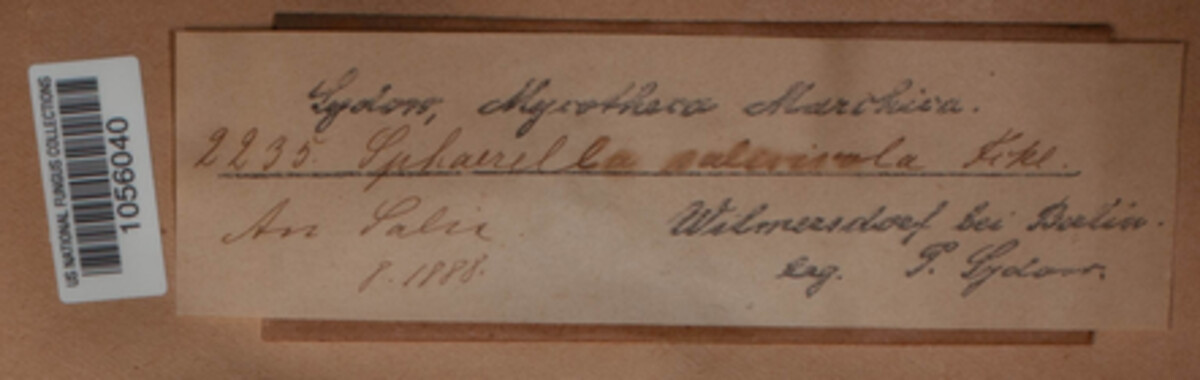 US NATIONAL FUNGUS COLLECTIONS
1056040
Sydow, Mycotheca Marchica.
2235. Sphaerella salicicola Fckl.
An Salix
8. 1888.
Wilmersdorf bei Berlin.
leg. P. Sydow.